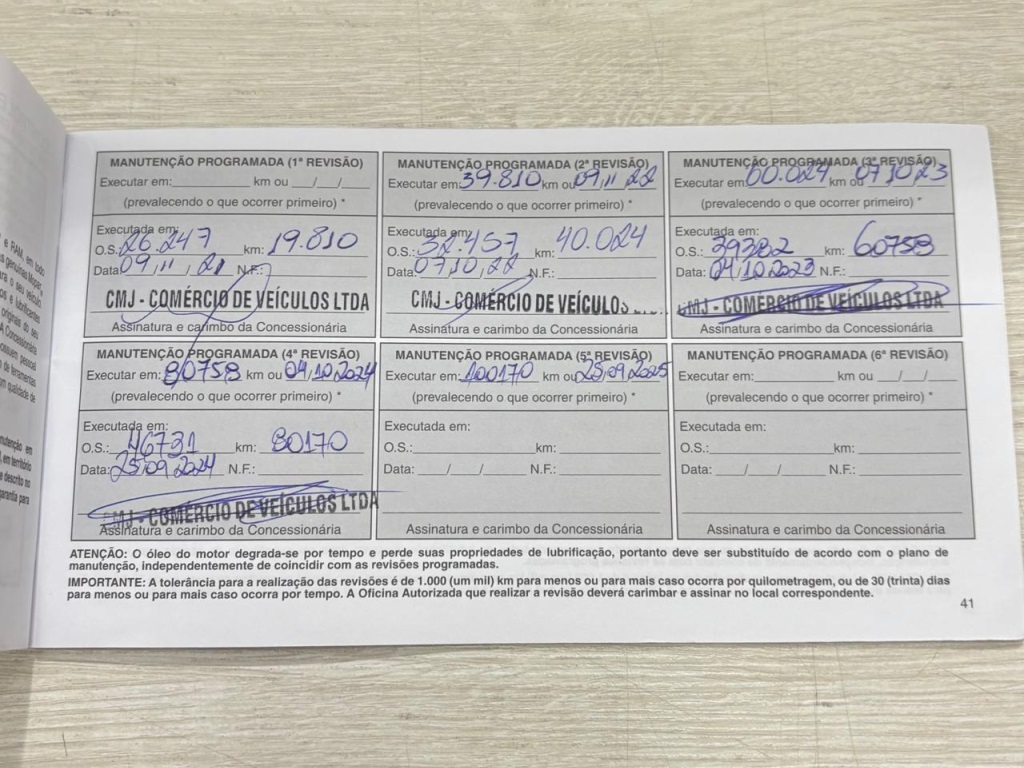 MANUTENÇÃO PROGRAMADA (1ª REVISÃO)
Executar em: km ou / /
(prevalecendo o que ocorrer primeiro) *
Executada em:
O.S.: 26.247 km: 19.810
Data: 09,11,21 N.F.:
CMJ - COMÉRCIO DE VEÍCULOS LTDA
Assinatura e carimbo da Concessionária
MANUTENÇÃO PROGRAMADA (2ª REVISÃO)
Executar em: 39.810 km ou 09,11,22
(prevalecendo o que ocorrer primeiro) *
Executada em:
O.S.: 32.457 km: 40.024
Data: 07,10,22 N.F.:
CMJ - COMÉRCIO DE VEÍCULOS
Assinatura e carimbo da Concessionária
MANUTENÇÃO PROGRAMADA (3ª REVISÃO)
Executar em: 60.024 km ou 07,10,23
(prevalecendo o que ocorrer primeiro) *
Executada em:
O.S.: 39382 km: 60758
Data: 04.10.2023 N.F.:
CMJ - COMÉRCIO DE VEÍCULOS LTDA
Assinatura e carimbo da Concessionária
MANUTENÇÃO PROGRAMADA (4ª REVISÃO)
Executar em: 80758 km ou 04.10.2024
(prevalecendo o que ocorrer primeiro) *
Executada em:
O.S.: 46731 km: 80170
Data: 25.09.2024 N.F.:
CMJ - COMÉRCIO DE VEÍCULOS LTDA
Assinatura e carimbo da Concessionária
MANUTENÇÃO PROGRAMADA (5ª REVISÃO)
Executar em: 100170 km ou 25.09.2025
(prevalecendo o que ocorrer primeiro) *
Executada em:
O.S.: km:
Data: / / N.F.:
Assinatura e carimbo da Concessionária
MANUTENÇÃO PROGRAMADA (6ª REVISÃO)
Executar em: km ou / /
(prevalecendo o que ocorrer primeiro) *
Executada em:
O.S.: km:
Data: / / N.F.:
Assinatura e carimbo da Concessionária
ATENÇÃO: O óleo do motor degrada-se por tempo e perde suas propriedades de lubrificação, portanto deve ser substituído de acordo com o plano de
manutenção, independentemente de coincidir com as revisões programadas.
IMPORTANTE: A tolerância para a realização das revisões é de 1.000 (um mil) km para menos ou para mais caso ocorra por quilometragem, ou de 30 (trinta) dias
para menos ou para mais caso ocorra por tempo. A Oficina Autorizada que realizar a revisão deverá carimbar e assinar no local correspondente.
41